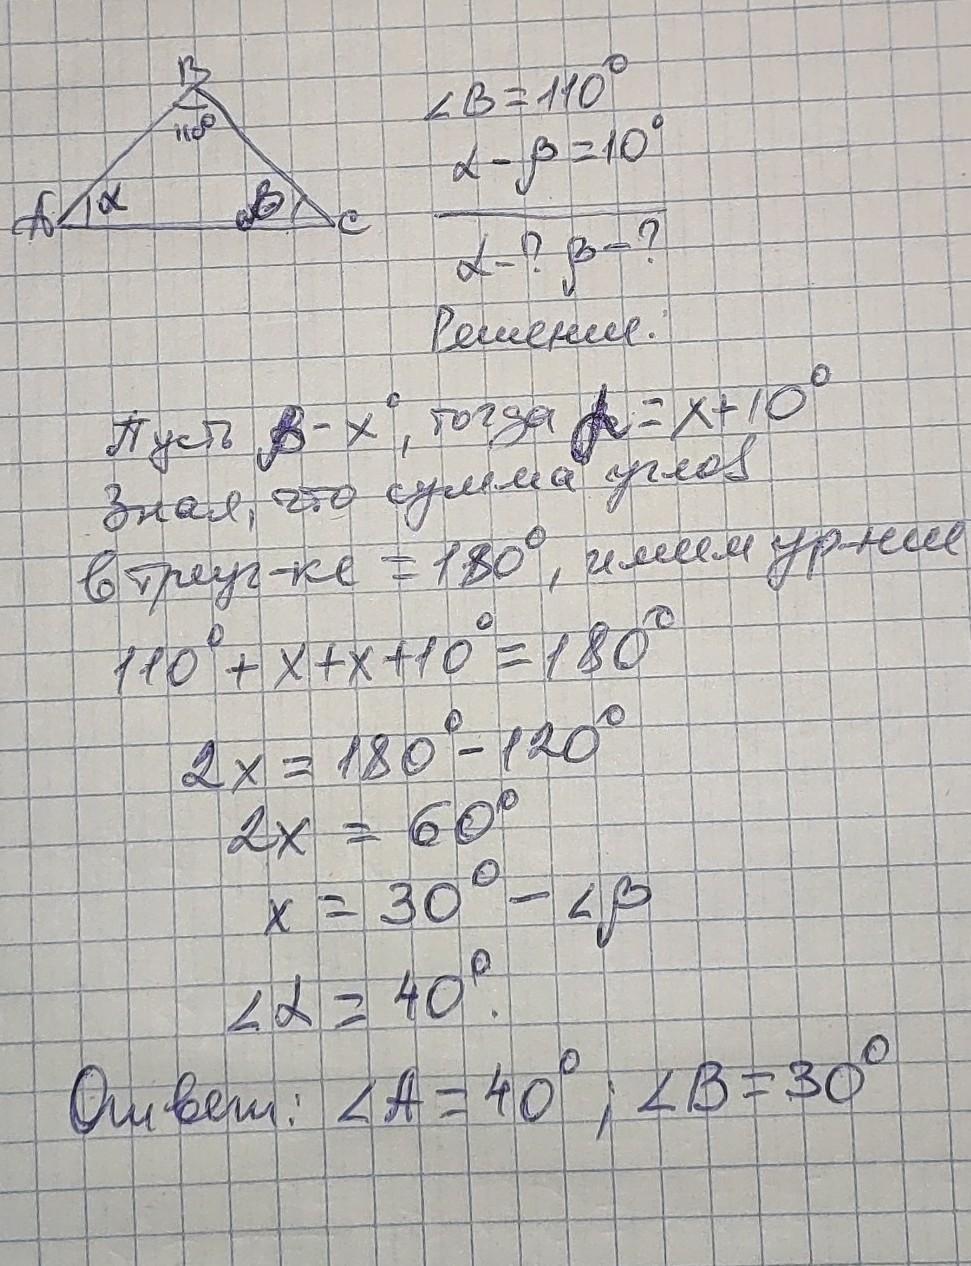 B
110°
A α β C
∠B = 110°
α - β = 10°
α - ? β - ?
Решение:
Пусть β - x°, тогда α = x + 10°
Зная, что сумма углов
в треуг-ке = 180°, имеем ур-ние
110° + x + x + 10° = 180°
2x = 180° - 120°
2x = 60°
x = 30° - ∠β
∠α = 40°.
Ответ: ∠A = 40°; ∠B = 30°